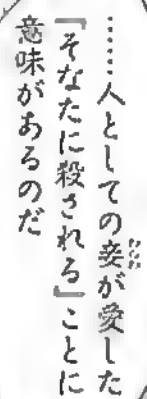 ……人としての妾が愛した
『そなたに殺される』ことに
意味があるのだ